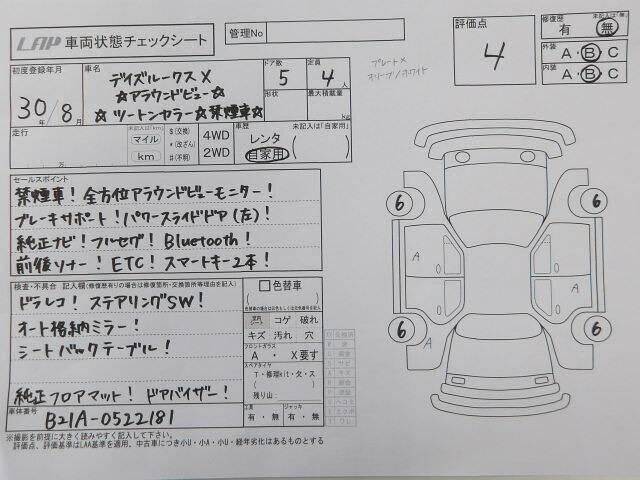 LAP 車両状態チェックシート
管理No
評価点
4
修復歴
未記入は「無」
有 無
外装
A・B・C
内装
A・B・C
初度登録年月
30年/8月
車名
デイズルークス X
☆アラウンドビュー☆
☆ツートンカラー☆禁煙車☆
ドア数
5
定員
4人
形状
最大積載量
kg
プレート×
オリーブ/ホワイト
走行
万
未記入は「km」
マイル
km
$ (交換)
* (改ざん)
# (不明)
4WD
2WD
車歴
未記入は「自家用」
レンタ
自家用
( )
セールスポイント
禁煙車! 全方位アラウンドビューモニター!
ブレーキサポート! パワースライドドア(左)!
純正ナビ! フルセグ! Bluetooth!
前後ソナー! ETC! スマートキー2本!
検査・不具合 記入欄(修復歴有りの場合は修復箇所・交換箇所等理由を記入)
ドラレコ! ステアリングSW!
オート格納ミラー!
シートバックテーブル!
純正フロアマット! ドアバイザー!
□色替車
( )
コゲ 破れ
キズ 汚れ 穴
フロントガラス
A ・ X要す
スペアタイヤ
T・修理kit・欠・ス
残り山:
工具
有・無
ジャッキ
有・無
車体番号
B21A-0522181
6
6
6
6
A
A
A
※撮影を前提に大きく読みやすく記入して下さい。
評価点、評価基準はLAA基準を適用。中古車につき小U・小A・小U・経年劣化はあるものとする